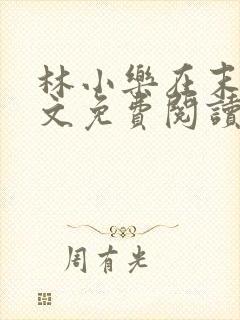 林小樂在末
文免費閱讀
周有光